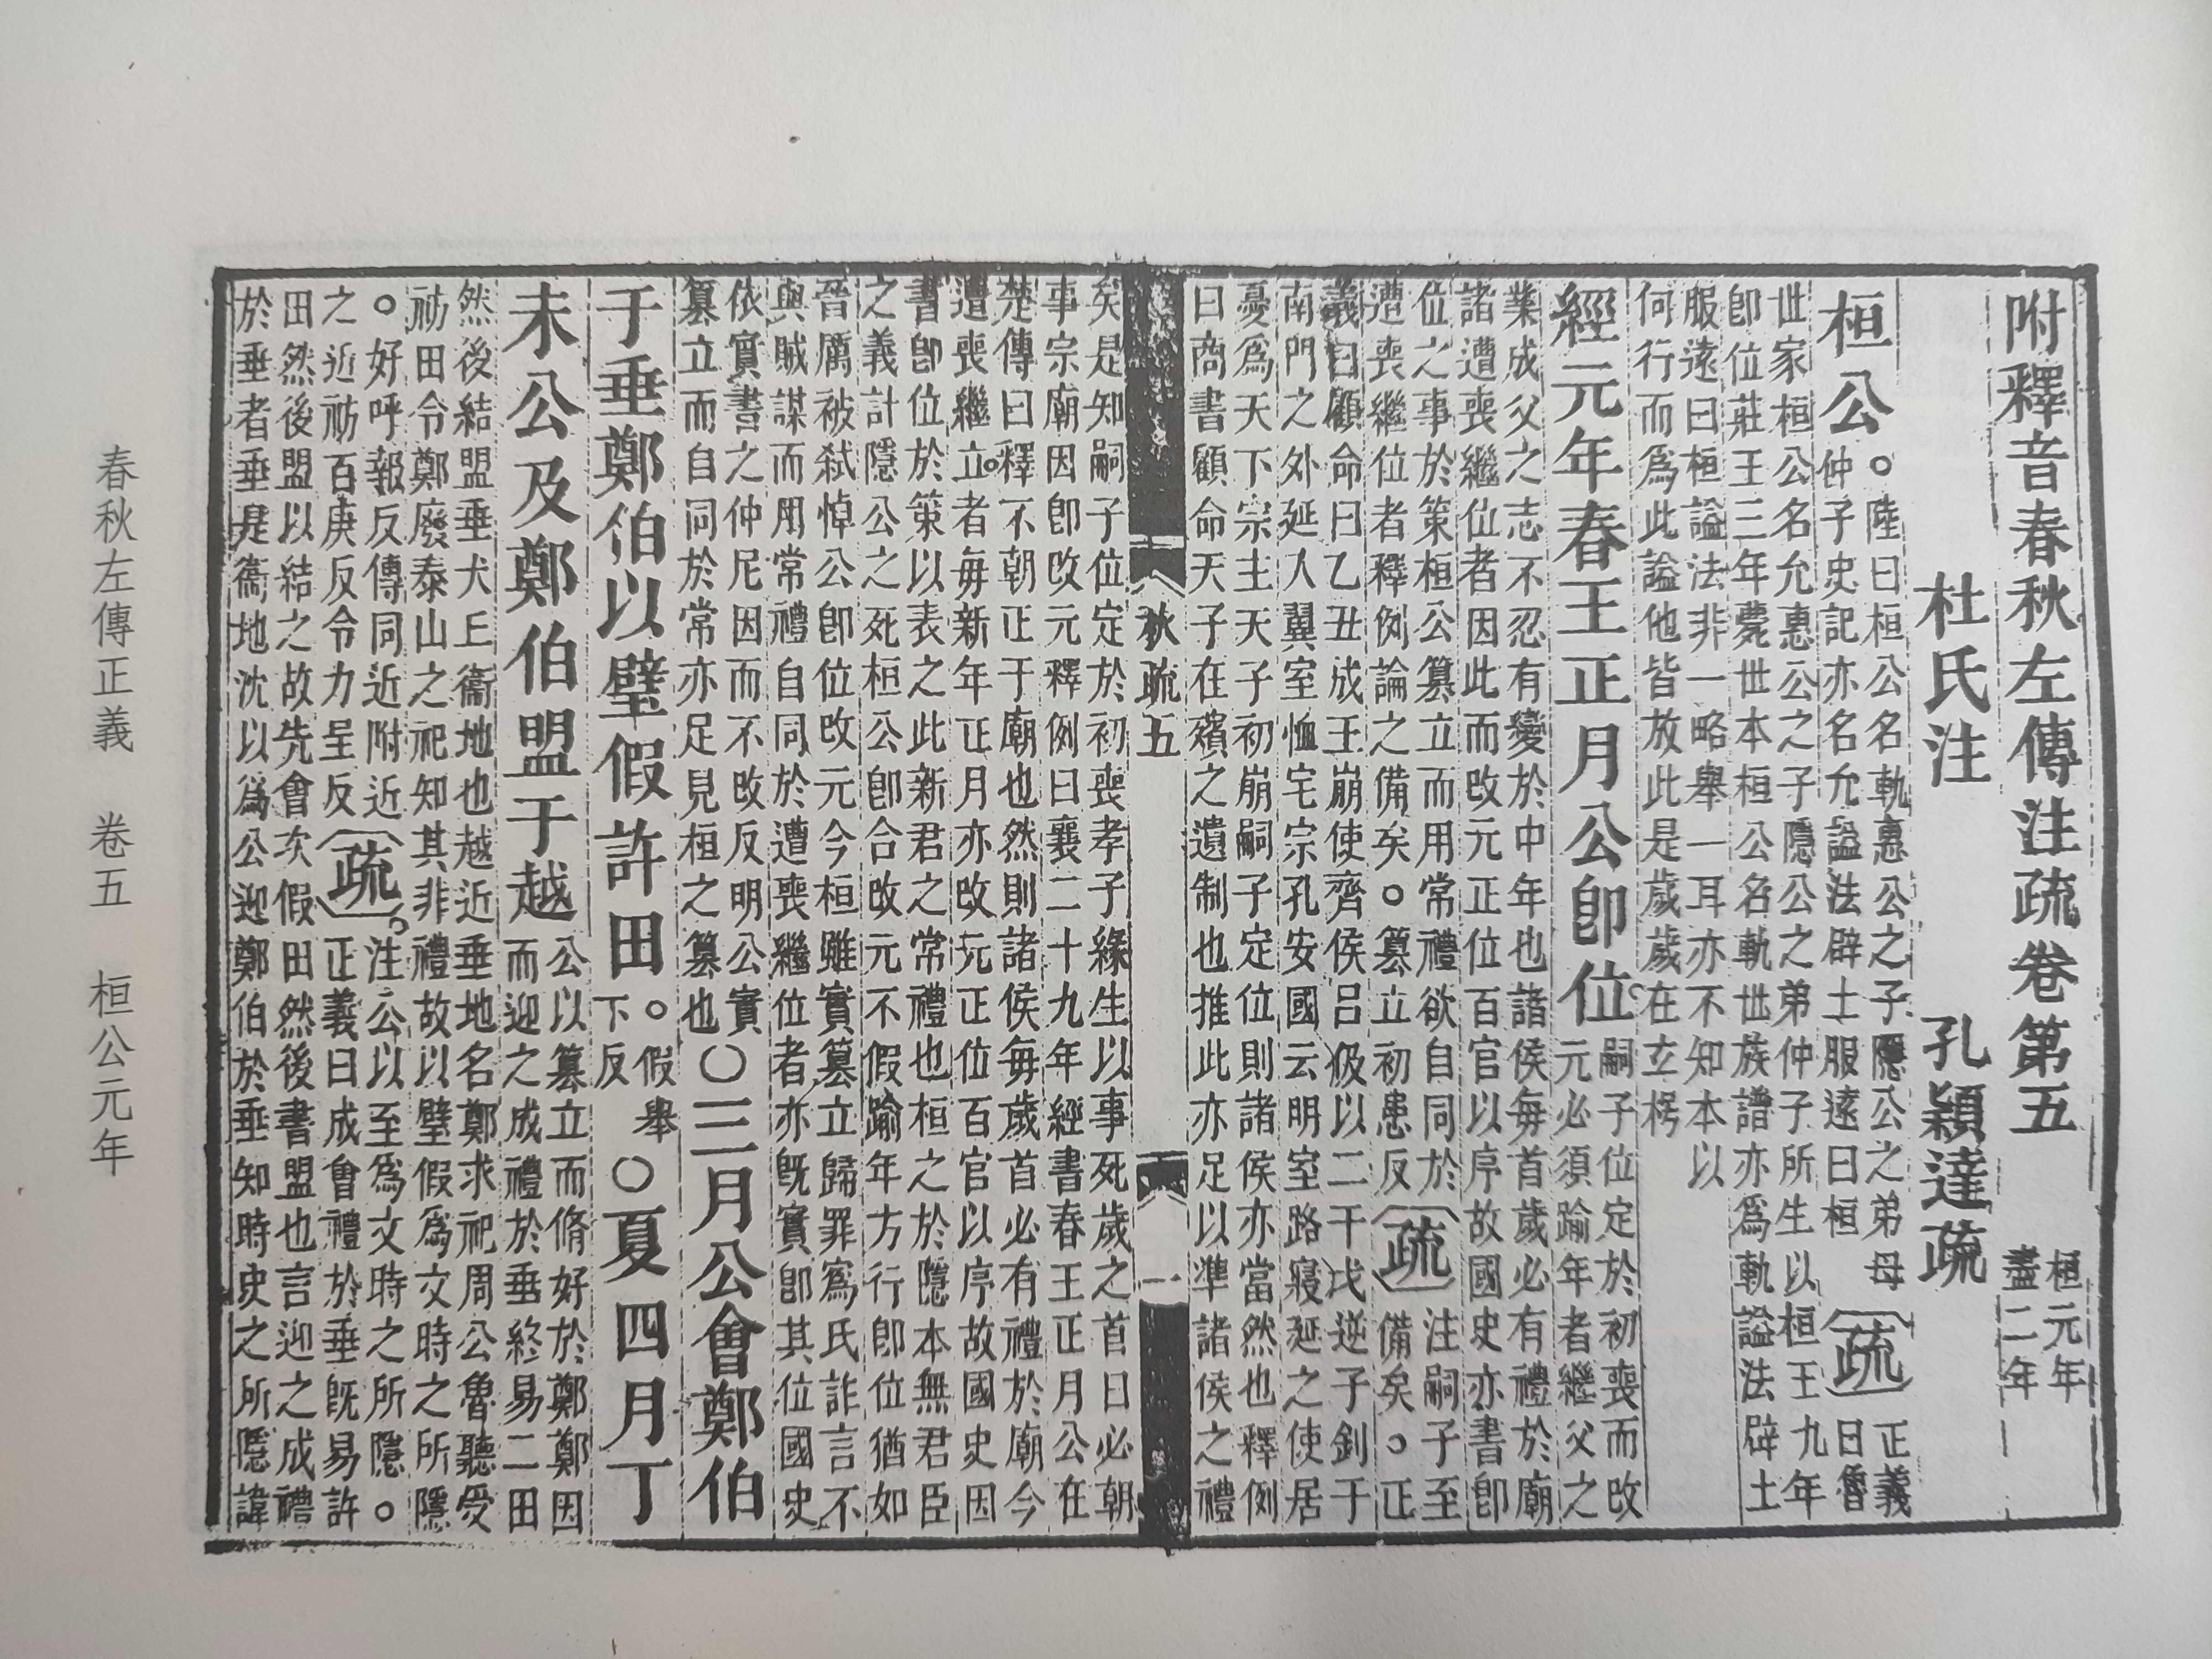 附釋音春秋左傳注疏卷第五
桓元年
盡二年
杜氏注　孔穎達疏
桓公
。陸曰桓公名軌惠公之子隱公之弟母
仲子史記亦名允謚法辟土服遠曰桓
疏
正義
曰魯
世家桓公名允惠公之子隱公之弟仲子所生以桓王九年
即位莊王三年薨世本桓公名軌世族譜亦爲軌謚法辟土
服遠曰桓謚法非一略舉一耳亦不知本以
何行而爲此謚他皆放此是歲歲在玄枵
經元年春王正月公即位
嗣子位定於初喪而改
元必須踰年者繼父之
業成父之志不忍有變於中年也諸侯每首歲必有禮於廟
諸遭喪繼位者因此而改元正位百官以序故國史亦書即
位之事於策桓公篡立而用常禮欲自同於
遭喪繼位者釋例論之備矣。篡立初患反
疏
注嗣子至
備矣。正
義曰顧命曰乙丑成王崩使齊侯呂伋以二干戈逆子釗于
南門之外延入翼室恤宅宗孔安國云明室路寢延之使居
憂爲天下宗主天子初崩嗣子定位則諸侯亦當然也釋例
曰商書顧命天子在殯之遺制也推此亦足以準諸侯之禮
秋疏五　一
矣是知嗣子位定於初喪孝子緣生以事死歲之首日必朝
事宗廟因即改元釋例曰襄二十九年經書春王正月公在
楚傳曰釋不朝正于廟也然則諸侯每歲首必有禮於廟今
遭喪繼立者每新年正月亦改元正位百官以序故國史因
書即位於策以表之此新君之常禮也桓之於隱本無君臣
之義計隱公之死桓公即合改元不假踰年方行即位猶如
晉厲被弒悼公即位改元今桓雖實篡立歸罪寪氏詐言不
與賊謀而用常禮自同於遭喪繼位者亦既實即其位國史
依實書之仲尼因而不改反明公實
篡立而自同於常亦足見桓之篡也
○三月公會鄭伯
于垂鄭伯以璧假許田
。假舉
下反
○夏四月丁
未公及鄭伯盟于越
公以篡立而脩好於鄭鄭因
而迎之成禮於垂終易二田
然後結盟垂犬丘衞地也越近垂地名鄭求祀周公魯聽受
祊田令鄭廢泰山之祀知其非禮故以璧假爲文時之所隱
。好呼報反傳同近附近
之近祊百庚反令力呈反
疏
。注公以至爲文時之所隱。
正義曰成會禮於垂既易許
田然後盟以結之故先會次假田然後書盟也言迎之成禮
於垂者垂是衞地沈以爲公迎鄭伯於垂知時史之所隱諱
春秋左傳正義　卷五　桓公元年